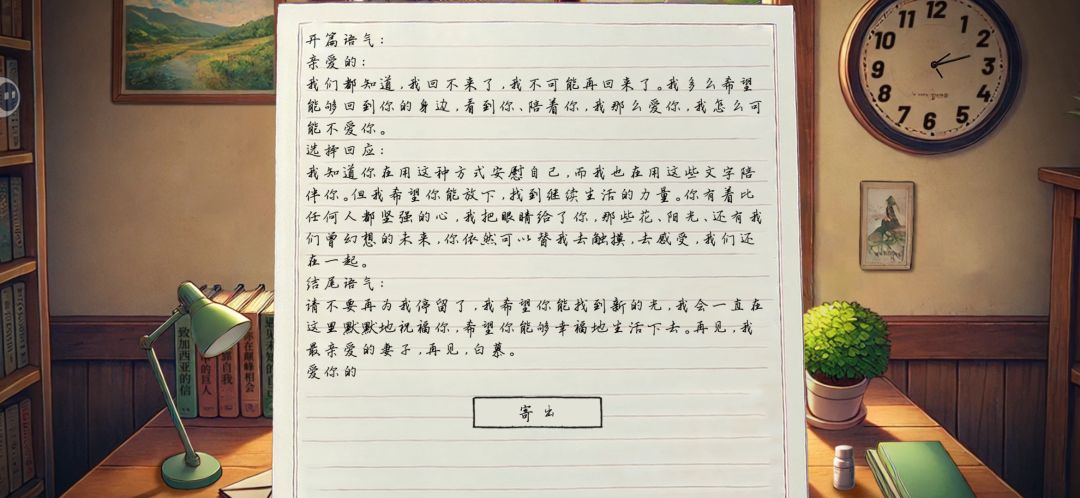 开篇语气：
亲爱的：
我们都知道，我回不来了，我不可能再回来了。我多么希望
能够回到你的身边，看到你、陪着你，我那么爱你，我怎么可
能不爱你。
选择回应：
我知道你在用这种方式安慰自己，而我也在用这些文字陪
伴你。但我希望你能放下，找到继续生活的力量。你有着比
任何人都坚强的心，我把眼睛给了你，那些花、阳光、还有我
们曾幻想的未来，你依然可以替我去触摸，去感受，我们还
在一起。
结尾语气：
请不要再为我停留了，我希望你能找到新的光，我会一直在
这里默默地祝福你，希望你能够幸福地生活下去。再见，我
最亲爱的妻子，再见，白慕。
爱你的
寄出
12
1
2
3
4
5
6
7
8
9
10
11
致加西亚的信
的巨人
靠自我
在巅峰相会